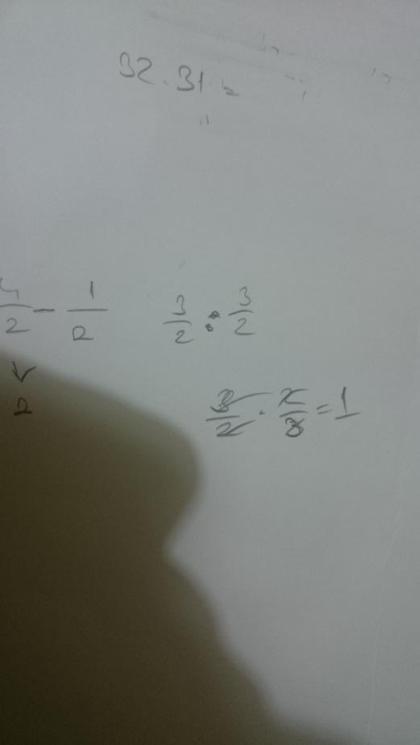 32.31
4/2 - 1/2
3/2 : 3/2
2
3/2 . 2/3 = 1